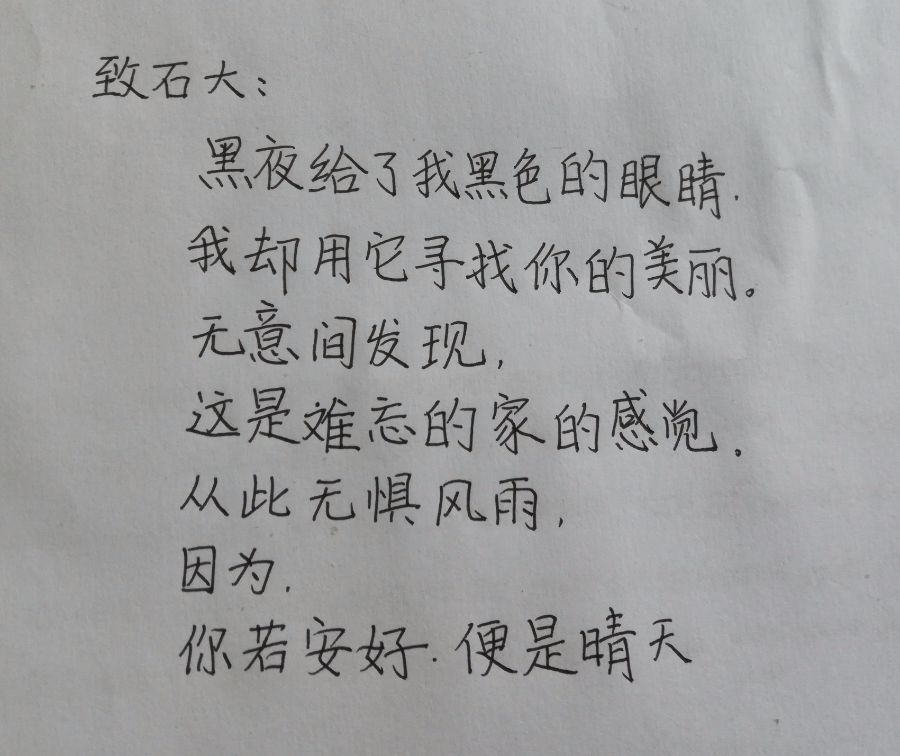 致石大：
黑夜给了我黑色的眼睛.
我却用它寻找你的美丽。
无意间发现,
这是难忘的家的感觉.
从此无惧风雨,
因为.
你若安好.便是晴天